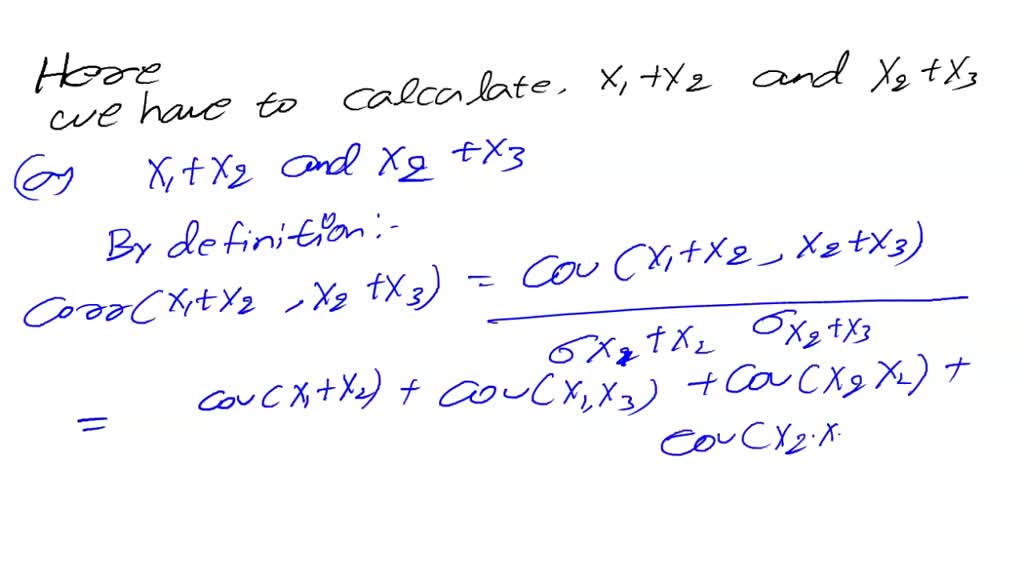 Here
we have to calculate. X₁+X₂ and X₂+X₃
(a) X₁+X₂ and X₂+X₃
By definition:-
Corr(X₁+X₂, X₂+X₃) = Cov(X₁+X₂, X₂+X₃)
σX₂+X₂ σX₂+X₃
= Cov(X₁+X₂) + Cov(X₁,X₃) + Cov(X₂X₂) +
Cov(X₂.X.